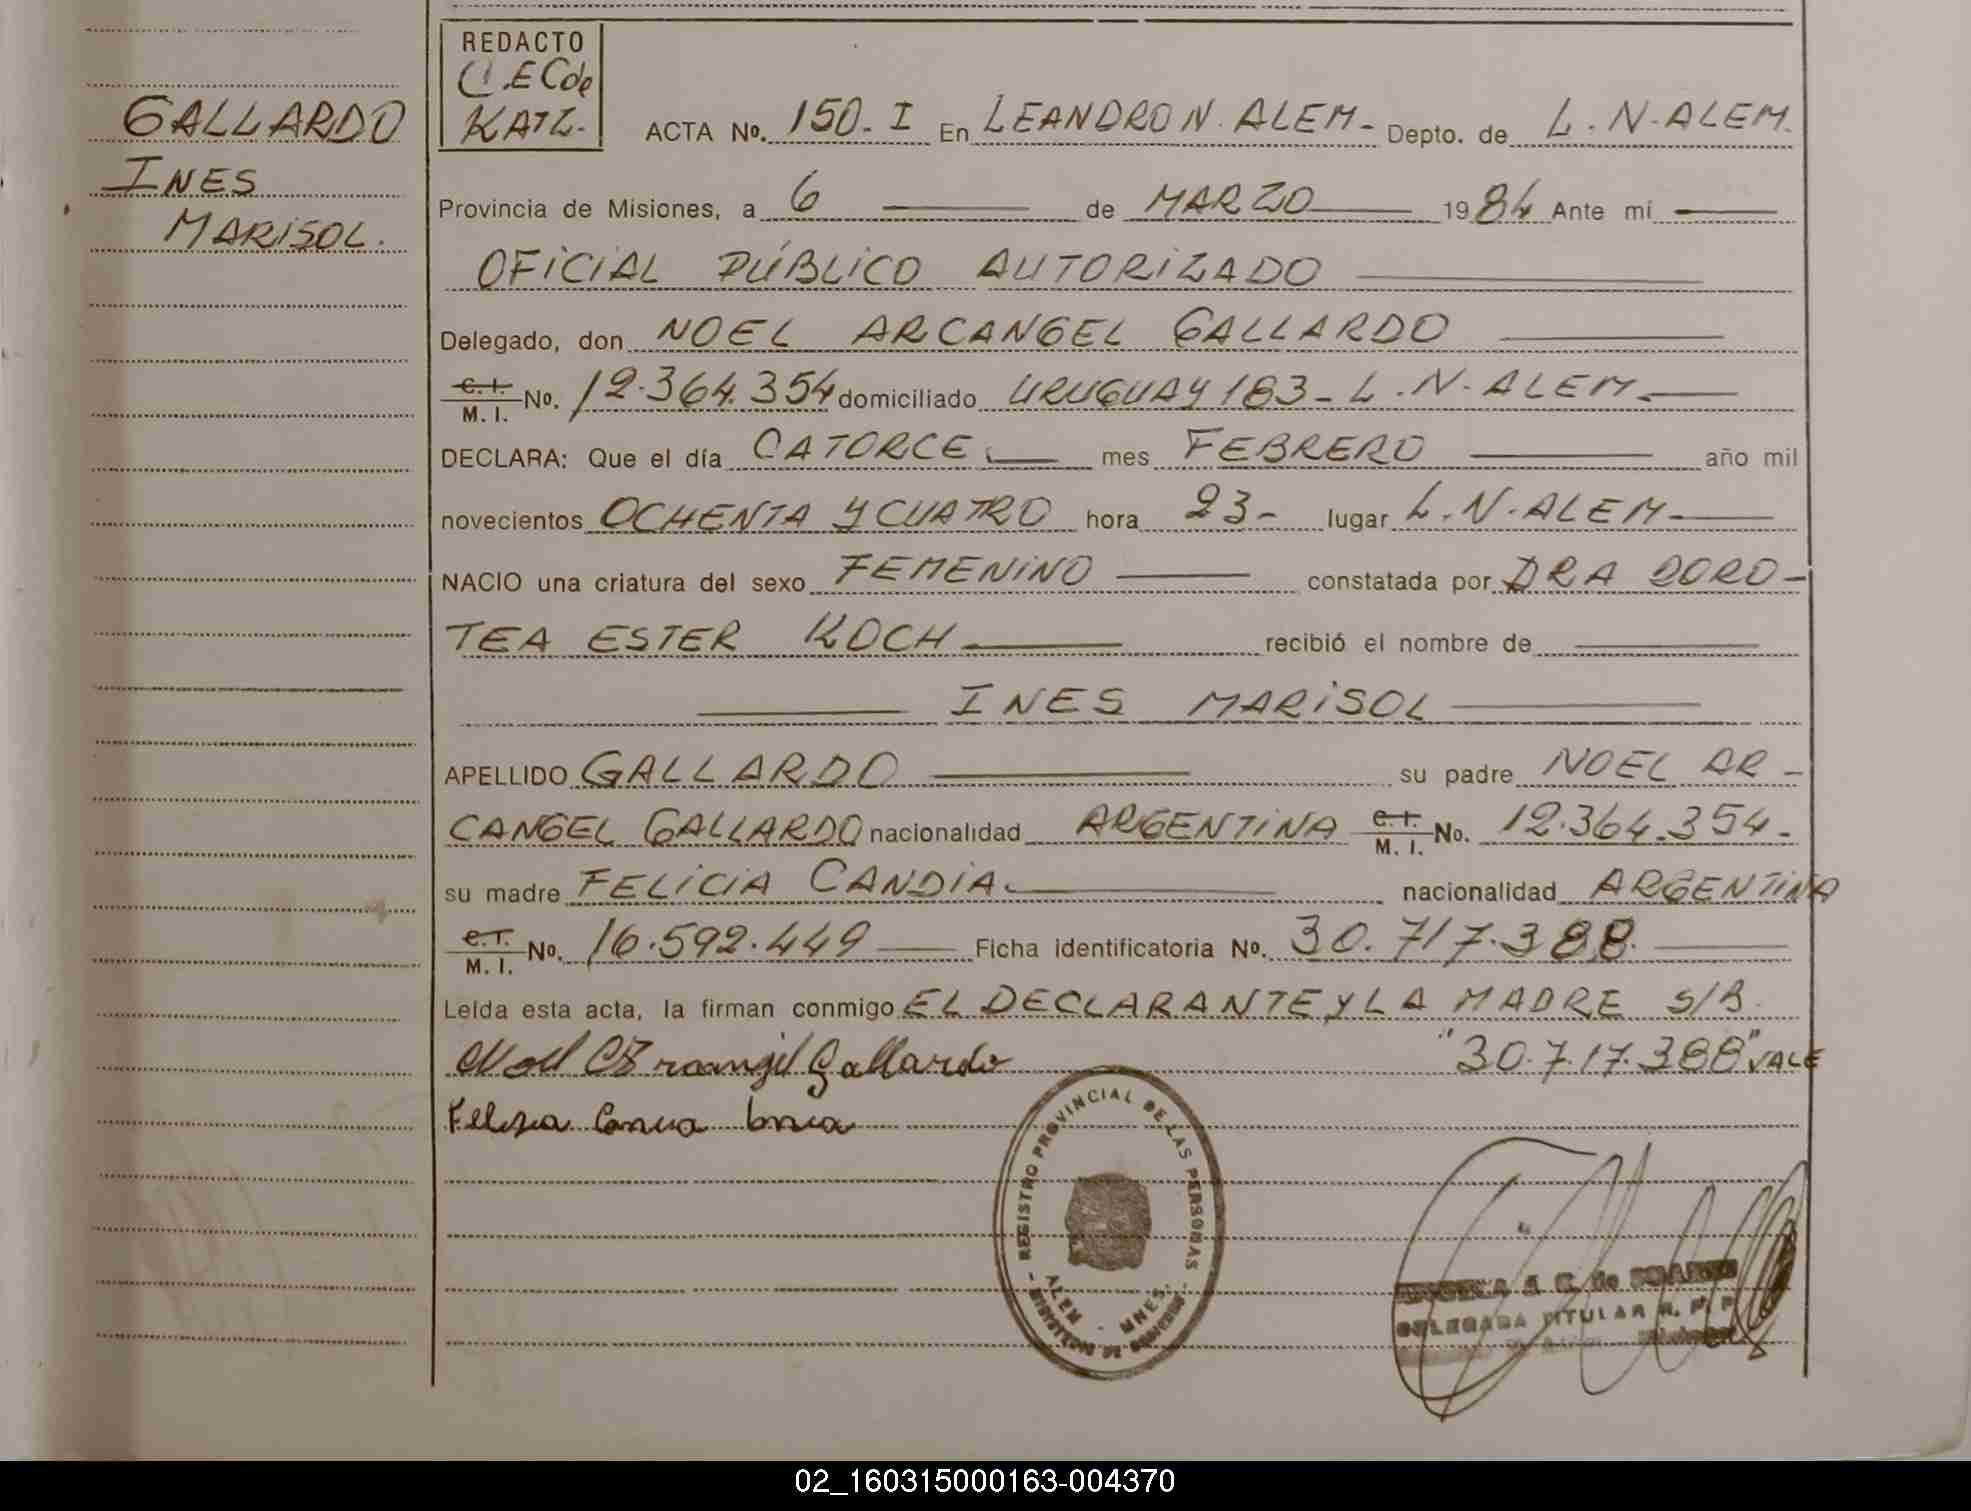 GALLARDO
INES
MARISOL.
REDACTO
C.EC de
KATZ.
ACTA No. 150-I En LEANDRO N. ALEM- Depto. de L.N-ALEM.
Provincia de Misiones, a 6 de MARZO 1984 Ante mí
OFICIAL PÚBLICO AUTORIZADO
Delegado, don NOEL ARCANGEL GALLARDO
C.I. M.I. No. 12.364.354 domiciliado URUGUAY 183- L.N-ALEM.
DECLARA: Que el día CATORCE. mes FEBRERO año mil
novecientos OCHENTA Y CUATRO hora 23- lugar L.N-ALEM-
NACIO una criatura del sexo FEMENINO constatada por DRA DORO-
TEA ESTER KOCH recibió el nombre de
INES MARISOL
APELLIDO GALLARDO su padre NOEL AR-
CANGEL GALLARDO nacionalidad ARGENTINA C.I. M.I. No. 12.364.354-
su madre FELICIA CANDIA. nacionalidad ARGENTINA
C.I. M.I. No. 16.592.449 Ficha identificatoria No. 30.717.388.
Leída esta acta, la firman conmigo EL DECLARANTE Y LA MADRE S/B.
"30.717.388" VALE
Gallardo
REGISTRO PROVINCIAL DE LAS PERSONAS
ALEM - MNES.
MINISTERIO DE GOBIERNO
A. C. de
DELEGADA TITULAR R. P. P.
02_160315000163-004370